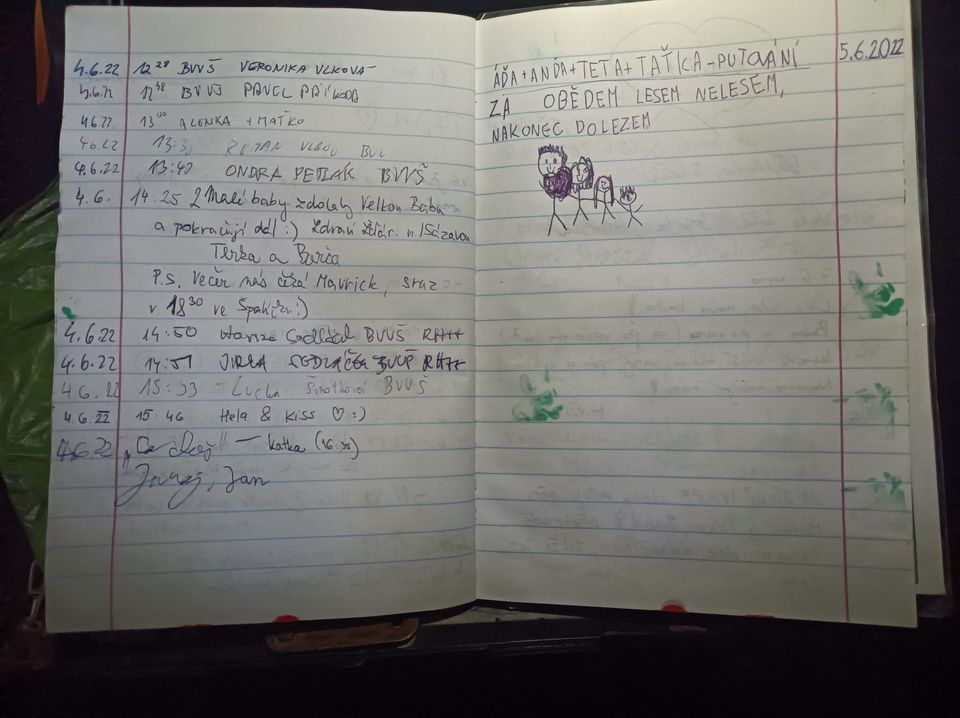 4.6.22 12 28 BVVŠ VERONIKA VLKOVA
4.6.22 12 48 BVVŠ PAVEL PŘÍKODA
4.6.22. 13 00 ALENKA + MAŤKO
4.6.22 13:3
4.6.22 13:40 ONDRA PETLÁK BVVŠ
4.6. 14.25 2 Malé baby zdolaly Velkou Babu
a pokračují dál :) Zdraví Žďár. n. /Sázavou
Terka a Barča
P.S. Večer nás čeká Mavrick, sraz
v 18 30 ve Špalíčku :)
4.6.22 14:50 BVVŠ
4.6.22 14:51 JIRKA SEDLÁČEK BVVŠ
4.6.22 15:33 Lucka BVVŠ
4.6.22 15:46 Hela & Kiss ♡ :)
4.6.22 — Katka
Jan
ÁĎA + ANĎA + TETA + TAŤÍCA - PUTOVÁNÍ 5.6.2022
ZA OBĚDEM LESEM NELESEM,
NAKONEC DOLEZEM